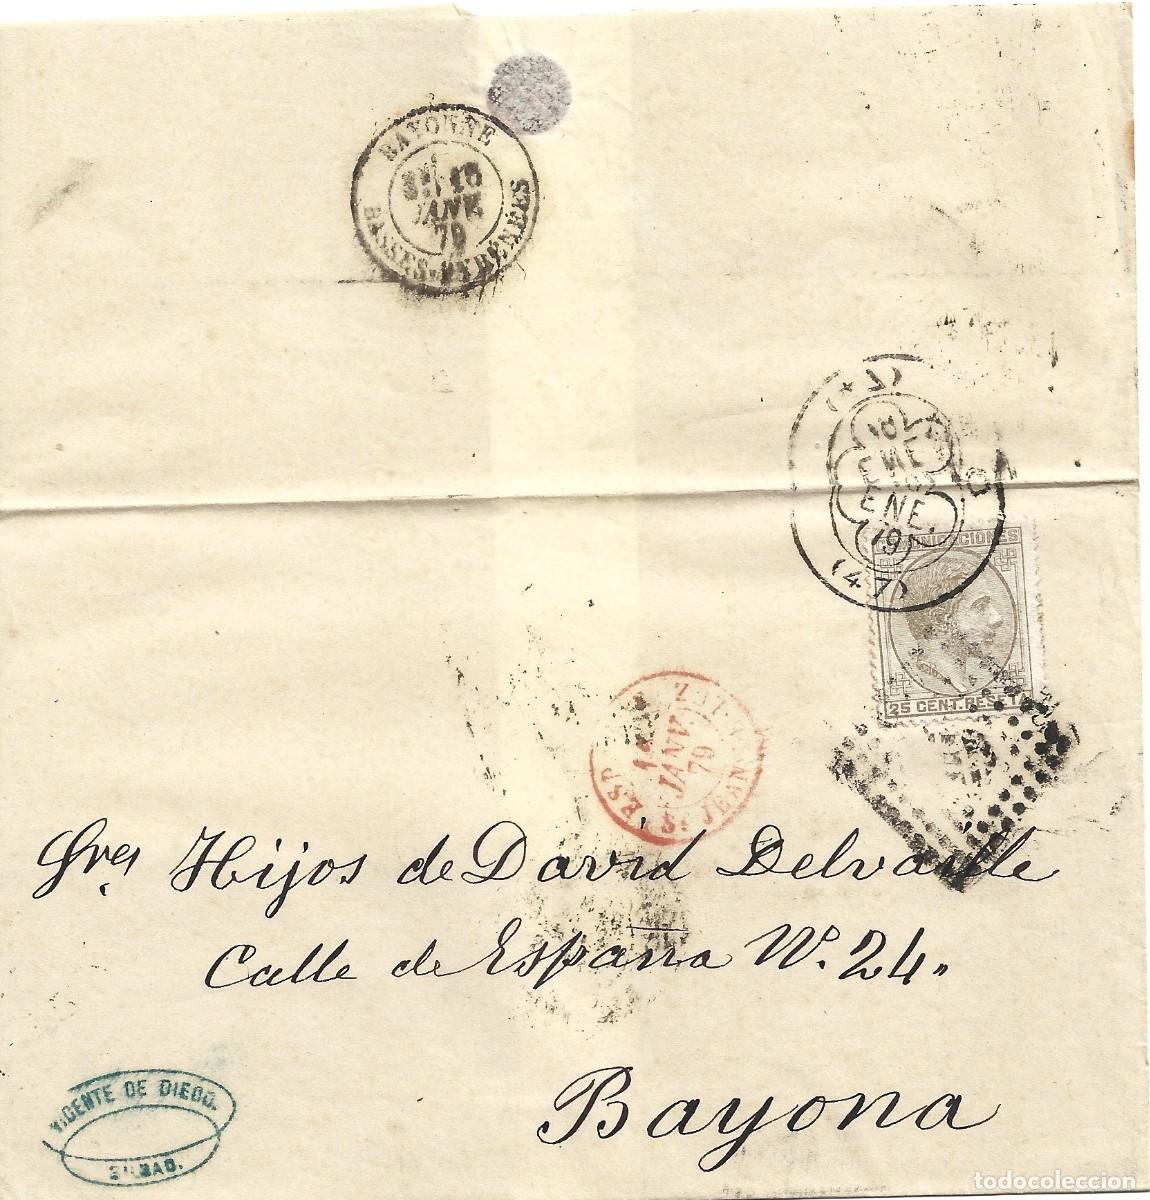 BAYONNE
16
JANV.
79
BASSES-PYRÉNÉES
ENE.
79
(47)
COMUNICACIONES
25 CENT. PESETA
JANV.
79
ESP.
St JEAN
Sres Hijos de David Delvaille
Calle de España No. 24.
Bayona
VICENTE DE DIEGO.
BILBAO.
todocoleccion